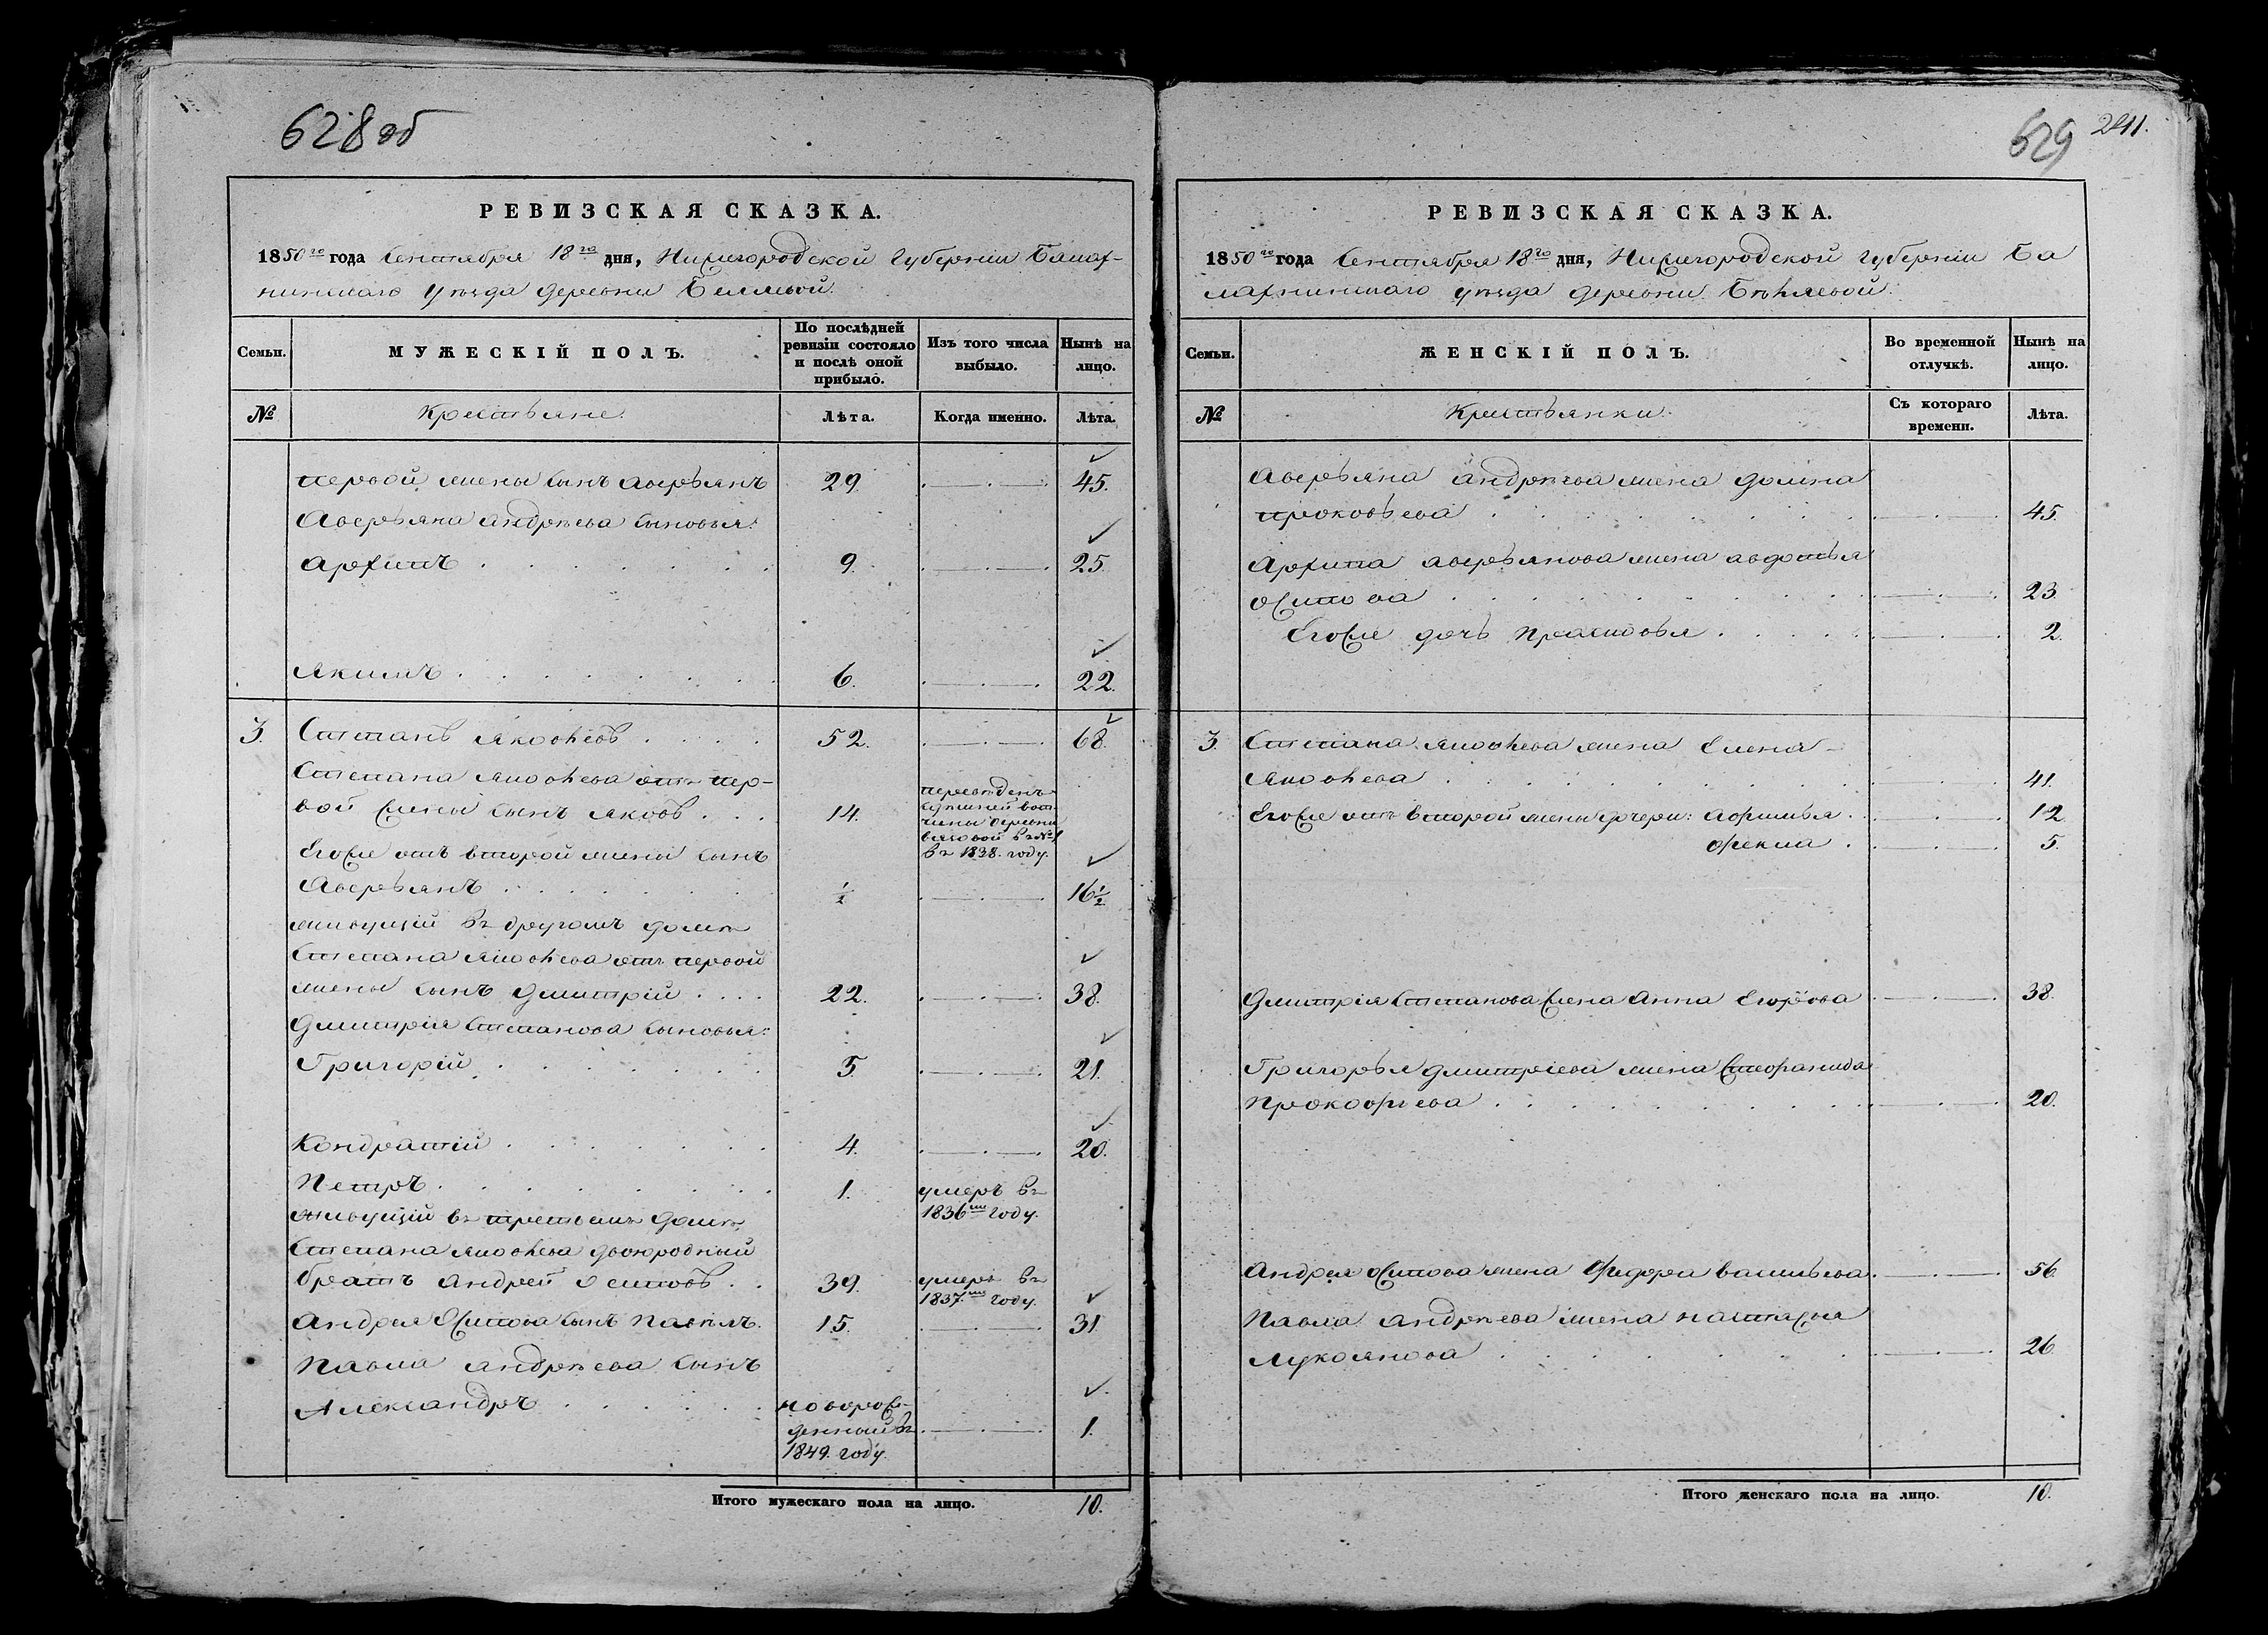 628об
РЕВИЗСКАЯ СКАЗКА.
1850го года Сентября 18го дня, Нижегородской Губерніи Балах-
нинскаго уѣзда деревни Беляевой.
Семьи.
МУЖЕСКІЙ ПОЛЪ.
По послѣдней ревизіи состояло и послѣ оной прибыло.
Изъ того числа выбыло.
Нынѣ на лицо.
№
Крестьяне.
Лѣта.
Когда именно.
Лѣта.
первой жены сынъ Аверьянъ 29. 45.
Аверьяна Андрѣева сыновья:
Архипъ 9. 25.
Якимъ 6. 22.
3. Степанъ Яковлевъ 52. 68.
Степана Яковлева отъ пер-
вой жены сынъ Яковъ 14. переведенъ
вотчины деревни
въ №1
въ 1838. году.
Егоже отъ второй жены сынъ
Аверьянъ ½ 16½
живущій въ другомъ домѣ
Степана Яковлева отъ первой
жены сынъ Дмитрій 22. 38.
Дмитрія Степанова сыновья:
Григорій 5. 21.
Кондратій 4. 20.
Петръ 1. умеръ въ
1836мъ году.
живущій въ третьемъ домѣ
Степана Яковлева двоюродный
братъ Андрей Осиповъ 39. умеръ въ
1837мъ году.
Андрея Осипова сынъ Павелъ. 15. 31
Павла Андрѣева сынъ
Александръ новорож-
денный въ
1849. году. 1.
Итого мужескаго пола на лицо. 10.
629 241.
РЕВИЗСКАЯ СКАЗКА.
1850го года Сентября 18го дня, Нижегородской Губерніи Ба
лахнинскаго уѣзда деревни Бѣляевой.
Семьи.
ЖЕНСКІЙ ПОЛЪ.
Во временной отлучкѣ.
Нынѣ на лицо.
№
Крестьянки.
Съ котораго времени.
Лѣта.
Аверьяна Андрѣева жена Домна
Прокофьева 45.
Архипа Аверьянова жена Авдотья
Осипова 23.
Егоже дочь Прасковья 2.
3. Степана Яковлева жена Елена
Яковлева 41.
Егоже отъ второй жены дочери: Афимья 12
Фекла 5.
Дмитрія Степанова жена Анна Егорова 38.
Григорья Дмитріева жена Степанида
Прокофьева 20.
Андрея Осипова жена Федора Васильева 56.
Павла Андрѣева жена Настасья
Лукоянова 26.
Итого женскаго пола на лицо. 10.